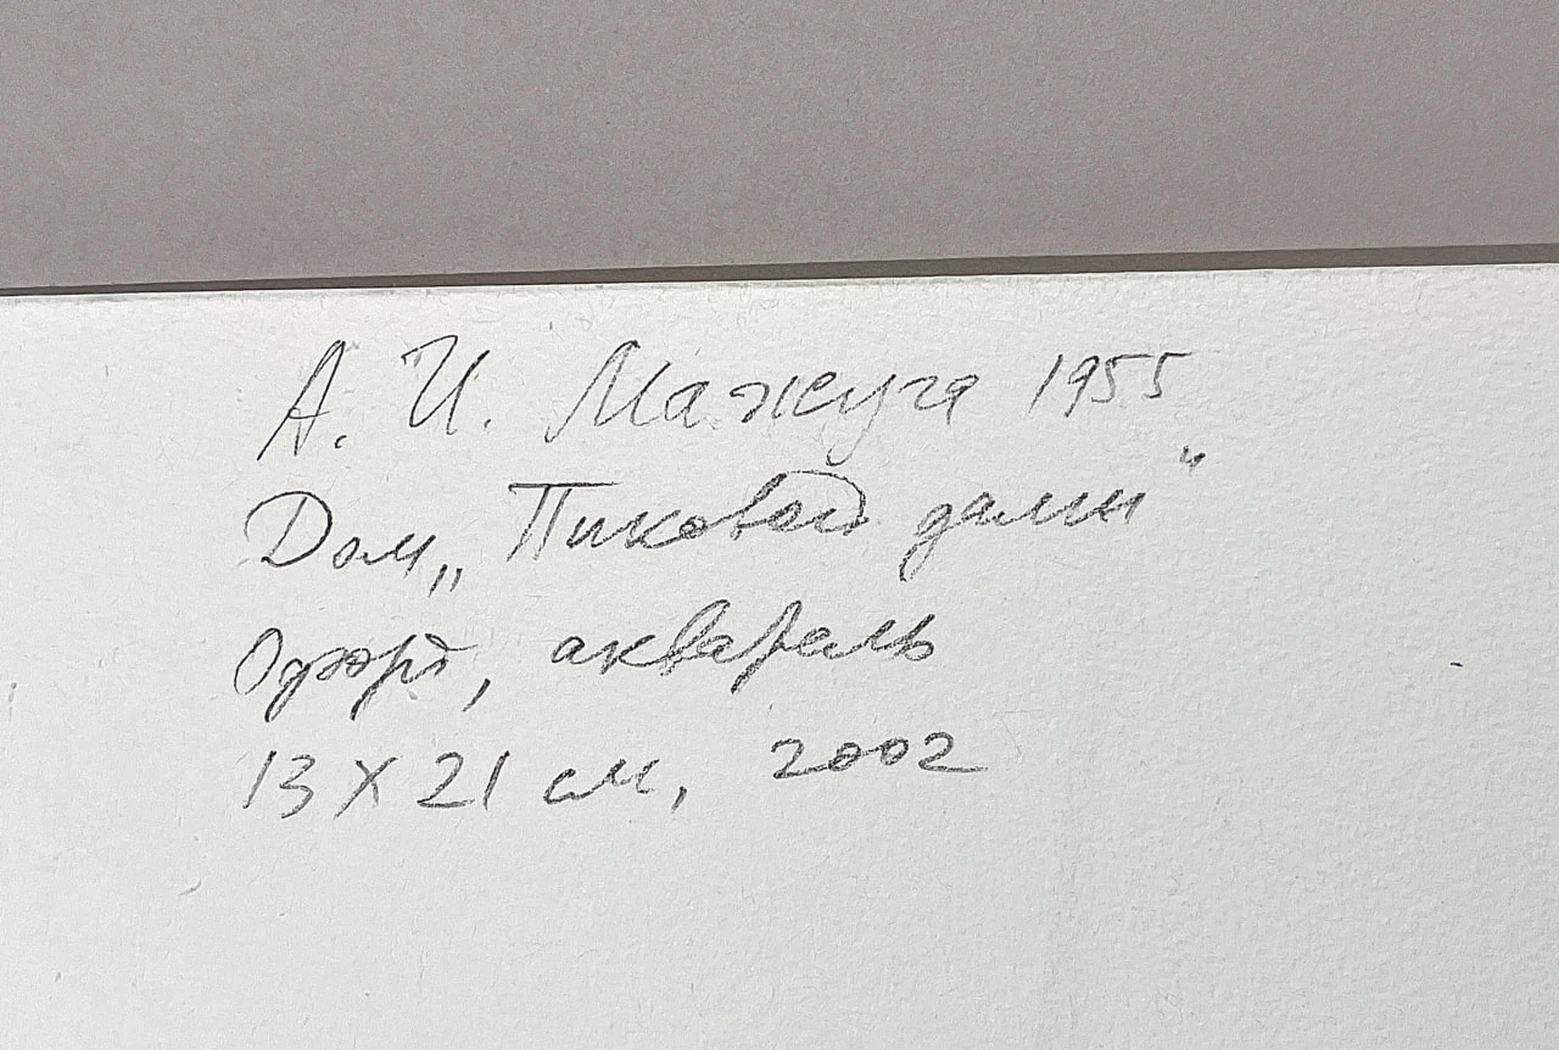 А. И. Мажуга 1955
Дом „Пиковой дамы“
Офорт, акварель
13 X 21 см, 2002